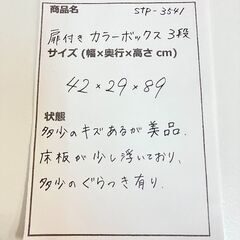 商品名 STP-3541
扉付き カラーボックス 3段
サイズ (幅×奥行×高さ cm)
42×29×89
状態
多少のキズあるが美品.
床板が少し浮いており、
多少のぐらつき有り.